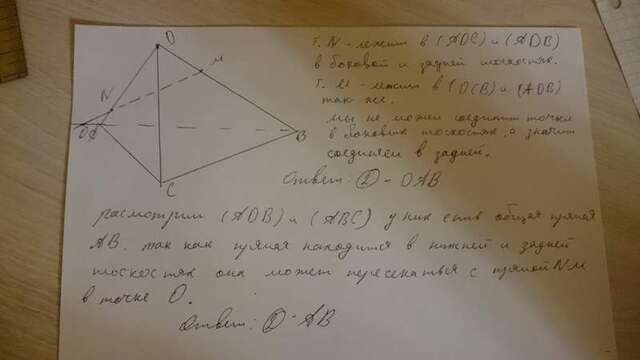 D
M
N
O
B
C
т. N - лежит в (ADC) и (ADB)
в боковой и задней плоскостях.
т. M - лежит в (DCB) и (ADB)
так же.
мы не можем соединить точки
в боковых плоскостях, а значит
соединяем в задней.
Ответ: ① - DAB
рассмотрим (ADB) и (ABC) у них есть общая прямая
AB. так как прямая находится в нижней и задней
плоскостях она может пересекаться с прямой NM
в точке O.
Ответ: ② - AB